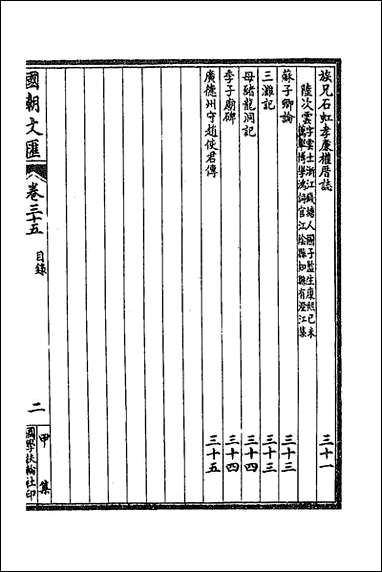 族兄石虹孝康權厝誌 三十一
陸次雲 字雲士浙江錢塘人國子監生康熙己未薦舉博學鴻詞官江陰縣知縣有澄江集
蘇子卿論 三十三
三灘記 三十三
母豬龍洞記 三十四
季子廟碑 三十四
廣德州守趙使君傳 三十五
國朝文匯 卷三十五 目錄 二 甲集 國學扶輪社印